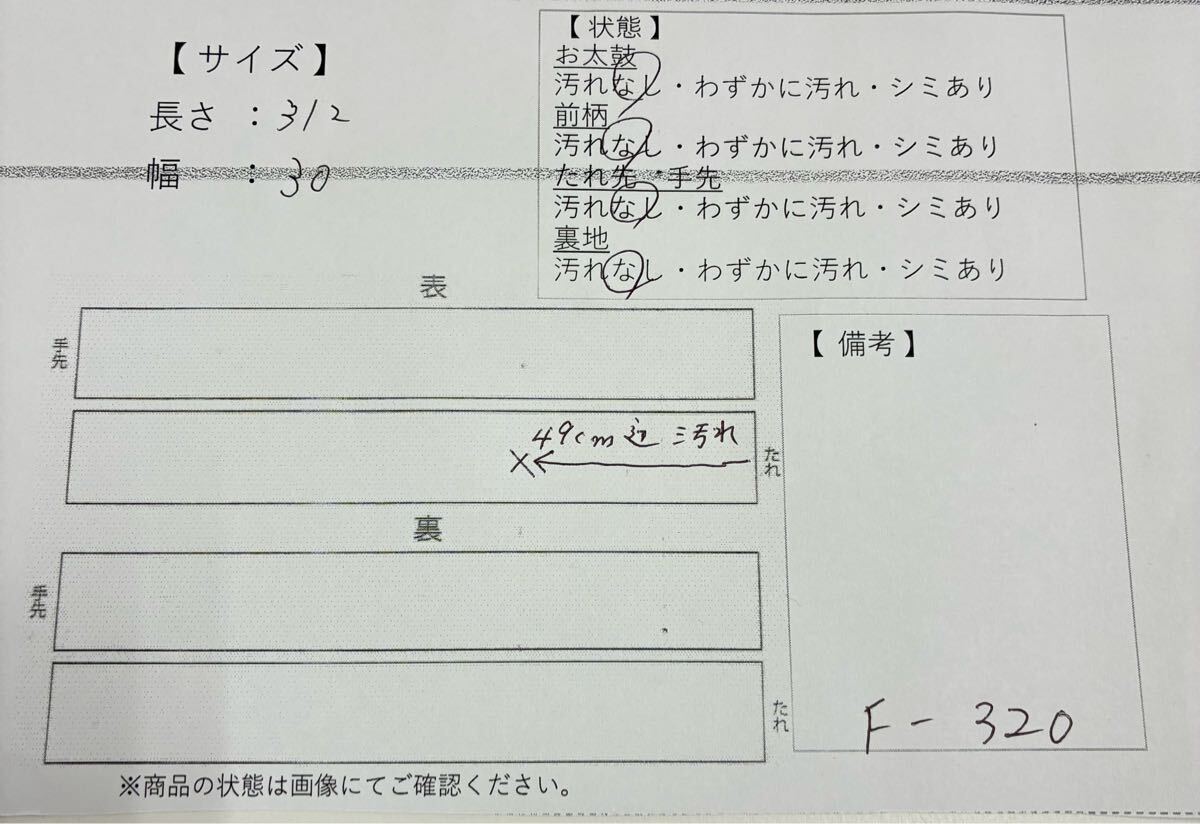 【サイズ】
長さ ：312
幅 ：30
【状態】
お太鼓
汚れなし・わずかに汚れ・シミあり
前柄
汚れなし・わずかに汚れ・シミあり
たれ先・手先
汚れなし・わずかに汚れ・シミあり
裏地
汚れなし・わずかに汚れ・シミあり
表
手先
49cm辺 汚れ
たれ
裏
手先
たれ
【備考】
F-320
※商品の状態は画像にてご確認ください。